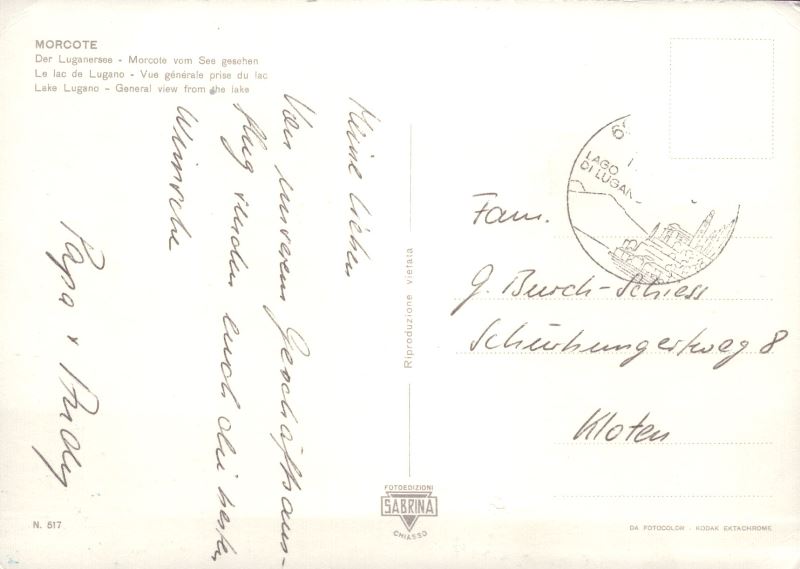 MORCOTE
Der Luganersee - Morcote vom See gesehen
Le lac de Lugano - Vue générale prise du lac
Lake Lugano - General view from the lake
Meine Lieben
Von unserem Geschäftsaus-
flug senden euch die besten
Wünsche
Papa +
LAGO
DI LUGAN
Fam.
G. Burch-Schiess
8
Kloten
Riproduzione vietata
FOTOEDIZIONI
SABRINA
CHIASSO
N. 517
DA FOTOCOLOR - KODAK EKTACHROME